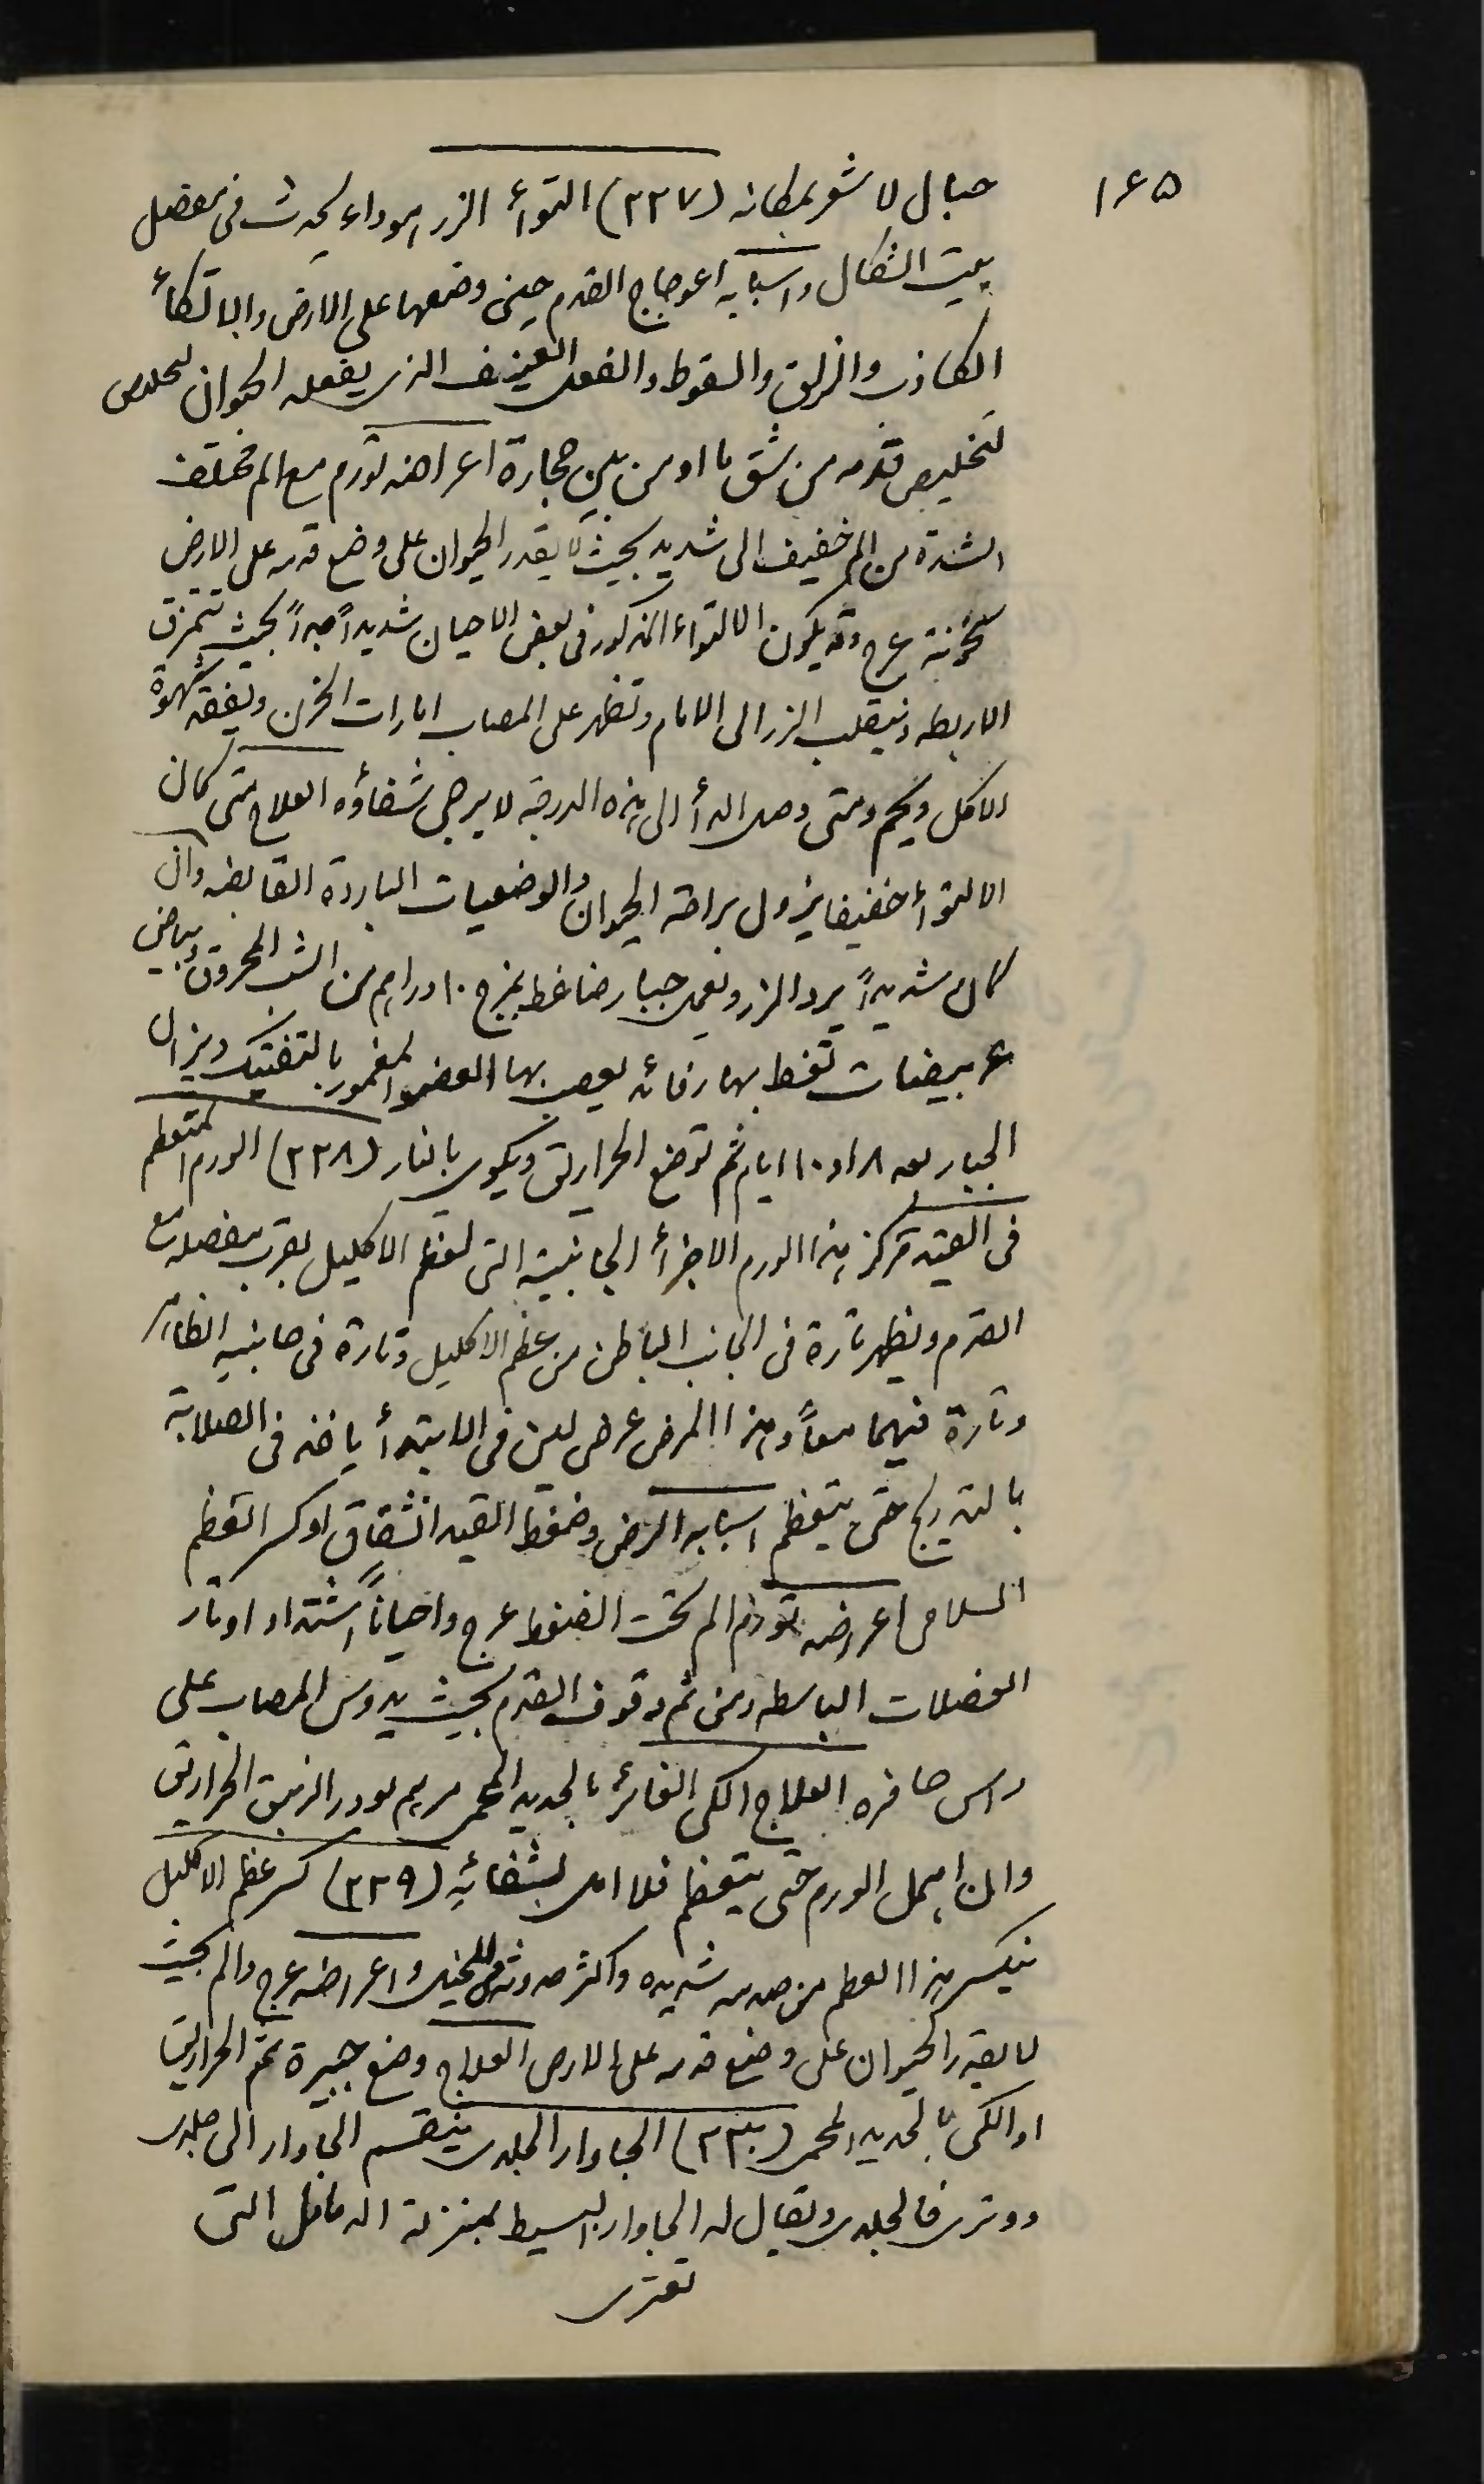 ١٦٥
حبال لا شو بمطانه (٢٢٧) التوأ الزر هو داء يحدث فى مفصل
بيت الشكال واسبابه اعوجاج القدم حين وضعها على الارض والاتكأ
الكاذب والزلق والسقوط والفعل العنيف الذى يفعله الحيوان لتخلص
لتخليص قدمه من شق ما او من بين حجارة اعراضه تورم مع الم مختلف
الشدة من الم خفيف الى شديد بحيث لا يقدر الحيوان على وضع قدمه على الارض
سخونة عرج وقد يكون الالتواء المذكور فى بعض الاحيان شديداً جداً بحيث تتمزق
الاربطه وينقلب الزر الى الامام وتظهر على المصاب امارات الحزن ويفقد شهوة
الاكل ويحم ومتى وصل الدأ الى هذه الدرجة لا يرجى شفاؤه العلاج متى كان
الالتوأ خفيفا يزول براحة الحيوان والوضعيات الباردة القابضه وان
كان شديداً يرد الزر ويعمل جبار ضاغط بمزج ١٠ دراهم من الشب المحروق وبياض
٤ بيضات تغط بها رفائد يعصب بها العضو المغمور بالتفتيك ويزال
الجبار بعد ٨ او ١٠ ايام ثم توضع الحراريق ويكوى بالنار (٢٢٨) الورم المتعظم
فى القيد مركز هذا الورم الاجزأ الجانبية التى لعظم الاكليل بقرب مفصله مع
القدم ويظهر تارة فى الجانب الباطن من عظم الاكليل وتارة فى جانبه الظاهر
وتارة فيهما معاً وهذا المرض عرض لين فى الابتدأ ياخذ فى الصلابة
بالتدريج حتى يتعظم اسبابه الرض وضغط القيد انشقاق او كسر العظم
السلامى اعراضه تورم الم تحت الضغط عرج واحياناً اشتداد اوتار
العضلات الباسطه ومن ثم وقوف القدم بحيث يدوس المصاب على
راس حافره العلاج الكى الغائر بالحديد المحمر مرهم يودر الزيبق الحراريق
وان اهمل الورم حتى يتعظم فلا امل بشفائه (٢٢٩) كسر عظم الاكليل
ينكسر هذا العظم من صدمه شديده واكثر حدوثه للخيل واعراضه عرج والم بحيث
لا يقدر الحيوان على وضع قدمه على الارض العلاج وضع جبيرة ثم الحراريق
او الكى بالحديد المحمر (٢٣٠) الجاوار الجلدى ينقسم الجاوار الى جلدى
ووترى فالجلدى ويقال له الجاوار البسيط بمنزلة الدمامل التى
تعترى